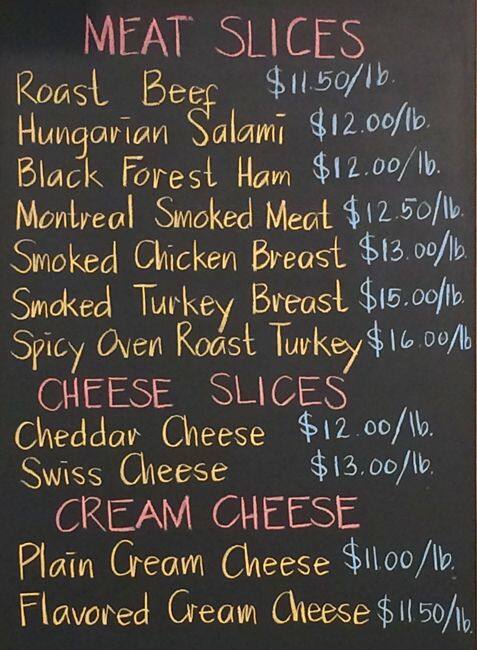 MEAT SLICES
Roast Beef $11.50/lb.
Hungarian Salami $12.00/lb.
Black Forest Ham $12.00/lb.
Montreal Smoked Meat $12.50/lb.
Smoked Chicken Breast $13.00/lb.
Smoked Turkey Breast $15.00/lb.
Spicy Oven Roast Turkey $16.00/lb
CHEESE SLICES
Cheddar Cheese $12.00/lb.
Swiss Cheese $13.00/lb.
CREAM CHEESE
Plain Cream Cheese $11.00/lb.
Flavored Cream Cheese $11.50/lb.